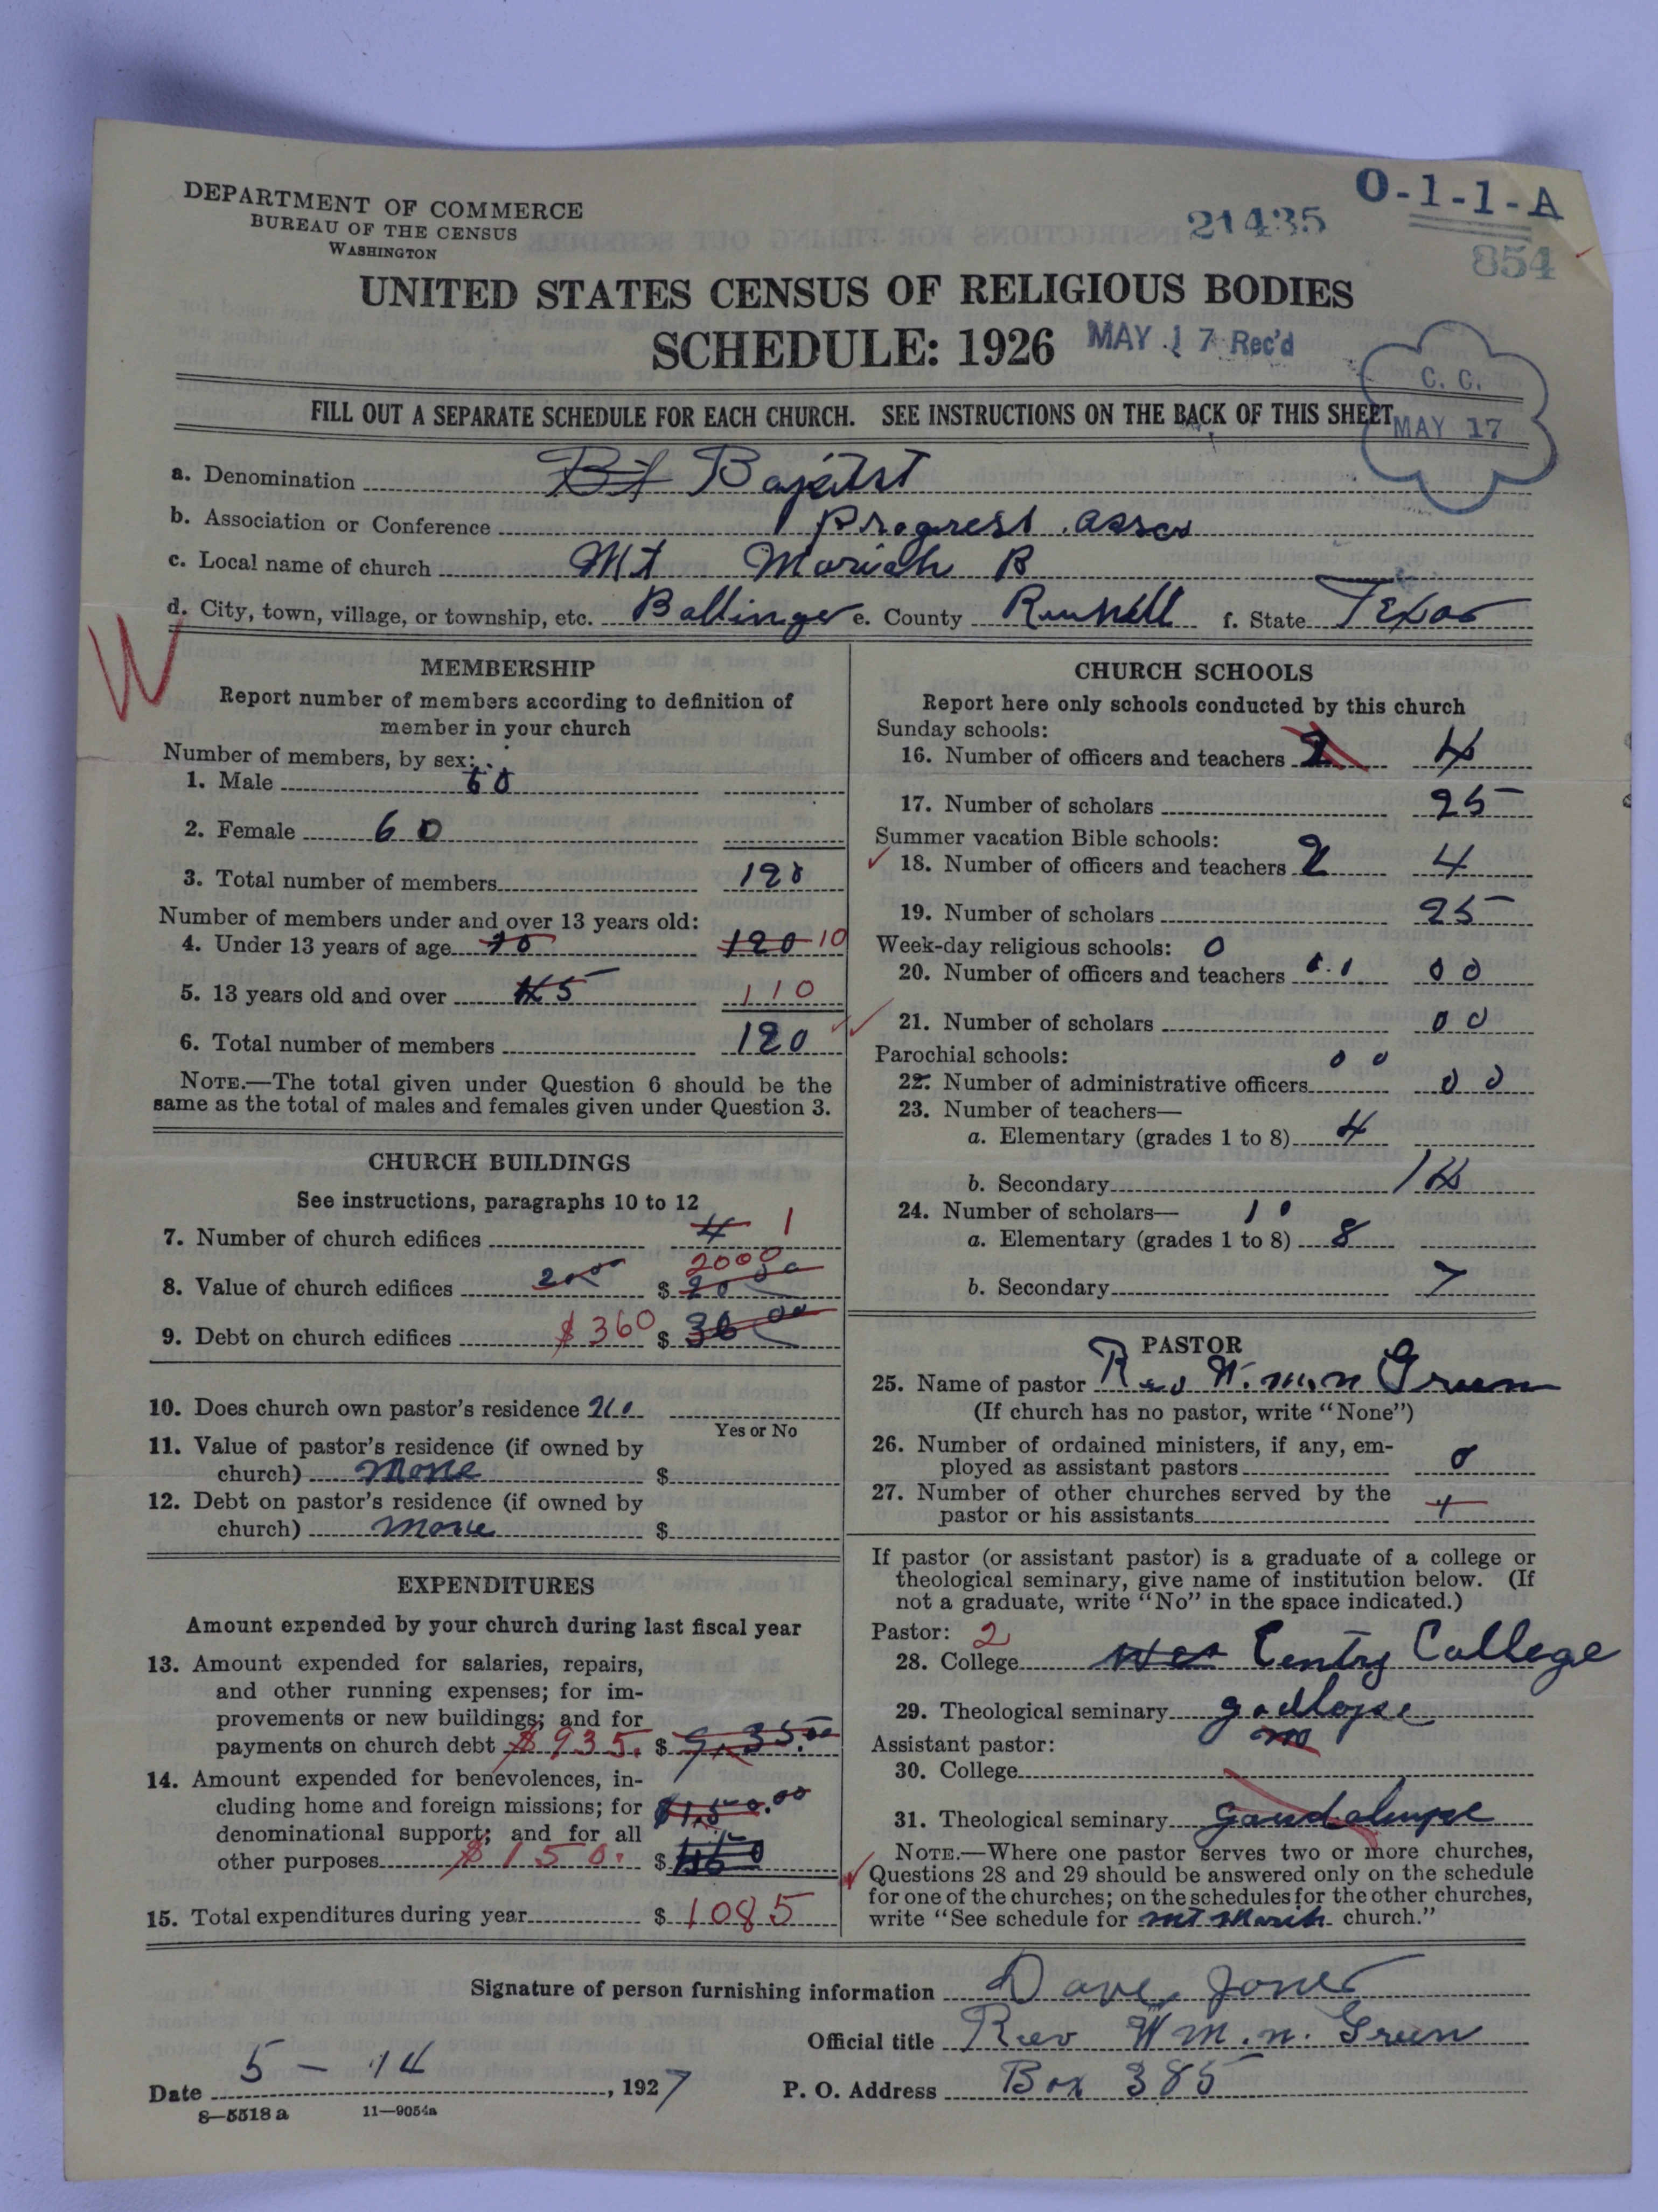 DEPARTMENT OF COMMERCE
BUREAU OF THE CENSUS
WASHINGTON
21435
O-1-1-A
854
UNITED STATES CENSUS OF RELIGIOUS BODIES
SCHEDULE: 1926
MAY 17 Rec'd
C. C.
MAY 17
FILL OUT A SEPARATE SCHEDULE FOR EACH CHURCH. SEE INSTRUCTIONS ON THE BACK OF THIS SHEET
a. Denomination Bt Baptist
b. Association or Conference Progress. asso
c. Local name of church Mt Moriah B
d. City, town, village, or township, etc. Ballinger e. County Runnell f. State Texas
W
MEMBERSHIP
Report number of members according to definition of
member in your church
Number of members, by sex:
1. Male 60
2. Female 60
3. Total number of members 120
Number of members under and over 13 years old:
4. Under 13 years of age 120 10
5. 13 years old and over 45 110
6. Total number of members 120
NOTE.—The total given under Question 6 should be the
same as the total of males and females given under Question 3.
CHURCH BUILDINGS
See instructions, paragraphs 10 to 12
7. Number of church edifices 4 1
2000
8. Value of church edifices 2000 $ 20 00
9. Debt on church edifices $360 $ 36 00
10. Does church own pastor's residence no
Yes or No
11. Value of pastor's residence (if owned by
church) None $
12. Debt on pastor's residence (if owned by
church) None $
EXPENDITURES
Amount expended by your church during last fiscal year
13. Amount expended for salaries, repairs,
and other running expenses; for im-
provements or new buildings; and for
payments on church debt $935. $ 9.35.00
14. Amount expended for benevolences, in-
cluding home and foreign missions; for
denominational support; and for all
other purposes $150. $
15. Total expenditures during year $ 1085
CHURCH SCHOOLS
Report here only schools conducted by this church
Sunday schools:
16. Number of officers and teachers 2 4
17. Number of scholars 25
Summer vacation Bible schools:
18. Number of officers and teachers 2 4
19. Number of scholars 25
Week-day religious schools: 0
20. Number of officers and teachers 00
21. Number of scholars 00
Parochial schools: 00
22. Number of administrative officers 00
23. Number of teachers—
a. Elementary (grades 1 to 8) 4
b. Secondary 14
24. Number of scholars— 10
a. Elementary (grades 1 to 8) 8
b. Secondary 7
PASTOR
25. Name of pastor Rev W. m. n Green
(If church has no pastor, write "None")
26. Number of ordained ministers, if any, em-
ployed as assistant pastors 0
27. Number of other churches served by the
pastor or his assistants
If pastor (or assistant pastor) is a graduate of a college or
theological seminary, give name of institution below. (If
not a graduate, write "No" in the space indicated.)
Pastor: 2
28. College Centry College
29. Theological seminary
Assistant pastor:
30. College
31. Theological seminary
NOTE.—Where one pastor serves two or more churches,
Questions 28 and 29 should be answered only on the schedule
for one of the churches; on the schedules for the other churches,
write "See schedule for church."
Signature of person furnishing information Dave Jones
Official title Rev Wm. n. Green
Date 5 - 14, 1927 P. O. Address Box 385
8—5518 a 11—9054a